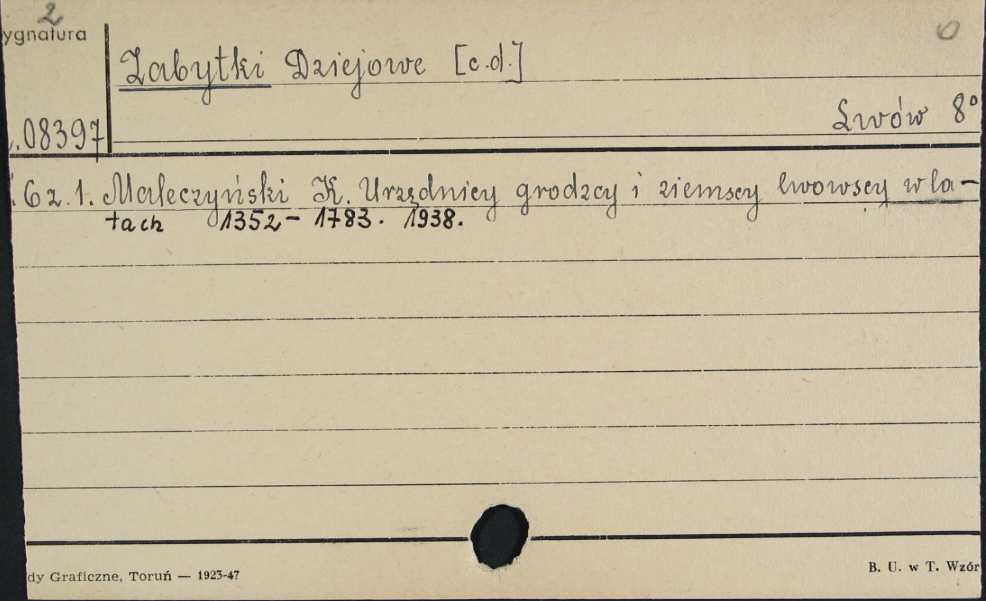 2
ygnatura
Zabytki Dziejowe [c.d.]
Lwów 8°
.08397
6 z. 1. Maleczyński K. Urzędnicy grodzcy i ziemscy lwowscy w la-
tach 1352-1783. 1938.
dy Graficzne, Toruń — 1923-47
B. U. w T. Wzór